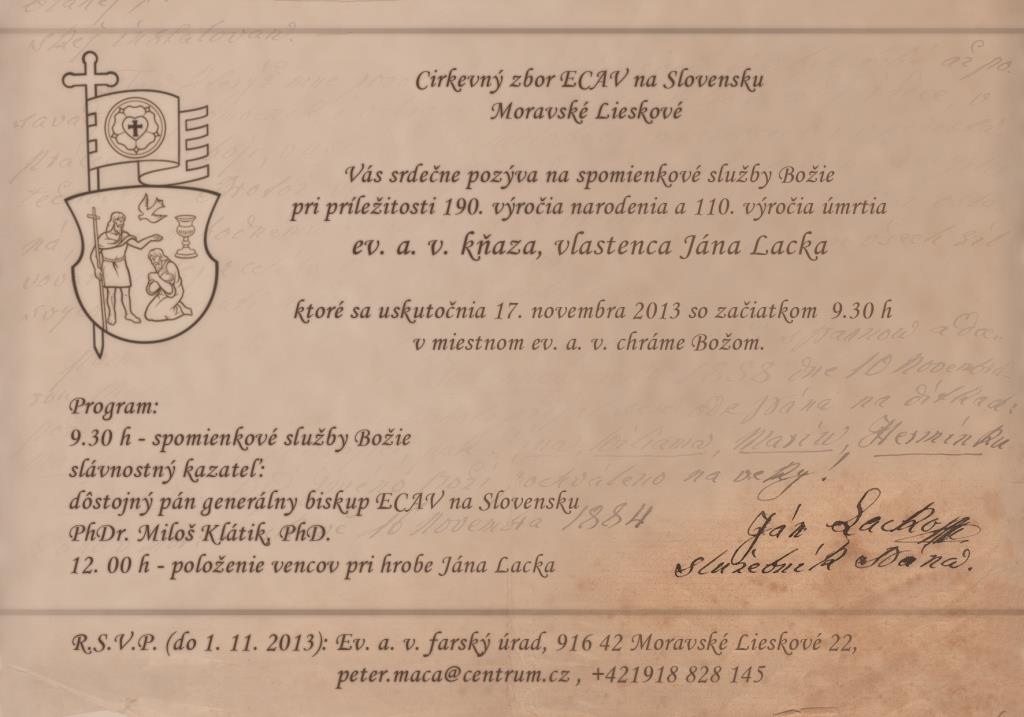 Cirkevný zbor ECAV na Slovensku
Moravské Lieskové
Vás srdečne pozýva na spomienkové služby Božie
pri príležitosti 190. výročia narodenia a 110. výročia úmrtia
ev. a. v. kňaza, vlastenca Jána Lacka
ktoré sa uskutočnia 17. novembra 2013 so začiatkom 9.30 h
v miestnom ev. a. v. chráme Božom.
1888 dne 10 Novembra
Pána na dítkad:
Mariu, Hermínku
na veky!
Program:
9.30 h - spomienkové služby Božie
slávnostný kazateľ:
dôstojný pán generálny biskup ECAV na Slovensku
16 Novembra 1884
PhDr. Miloš Klátik, PhD.
12. 00 h - položenie vencov pri hrobe Jána Lacka
Ján Lacko
služebník Pána.
R.S.V.P. (do 1. 11. 2013): Ev. a. v. farský úrad, 916 42 Moravské Lieskové 22,
peter.maca@centrum.cz , +421918 828 145